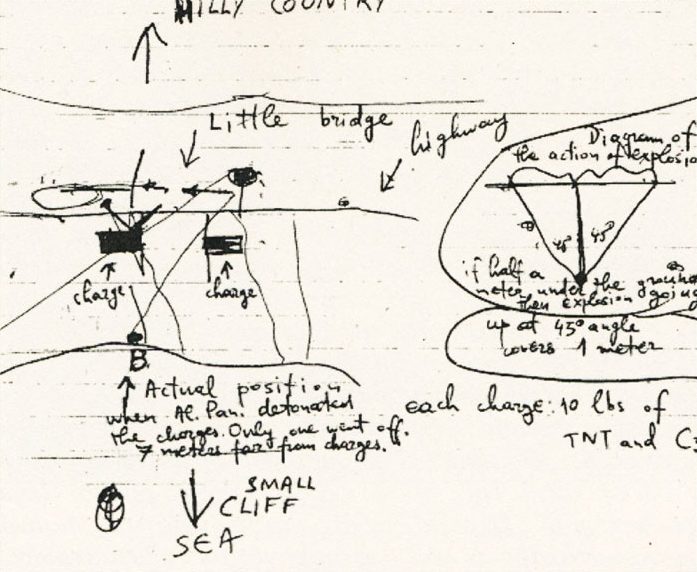 HILLY COUNTRY
Little bridge
highway
Diagram of
the action of explosio
45°
45°
charge
charge
if half a
meter under the ground
then explosion going
up at 45° angle
covers 1 meter
B
Actual position
when Al. Pan. detonated
the charges. Only one went off.
7 meters far from charges.
each charge: 10 lbs of
TNT and C3
SMALL
CLIFF
SEA